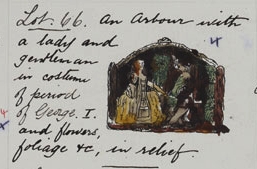 Lot. 66. An Arbour with
a lady and
gentleman
in costume
of period
of George. I.
and flowers,
foliage &c, in relief.